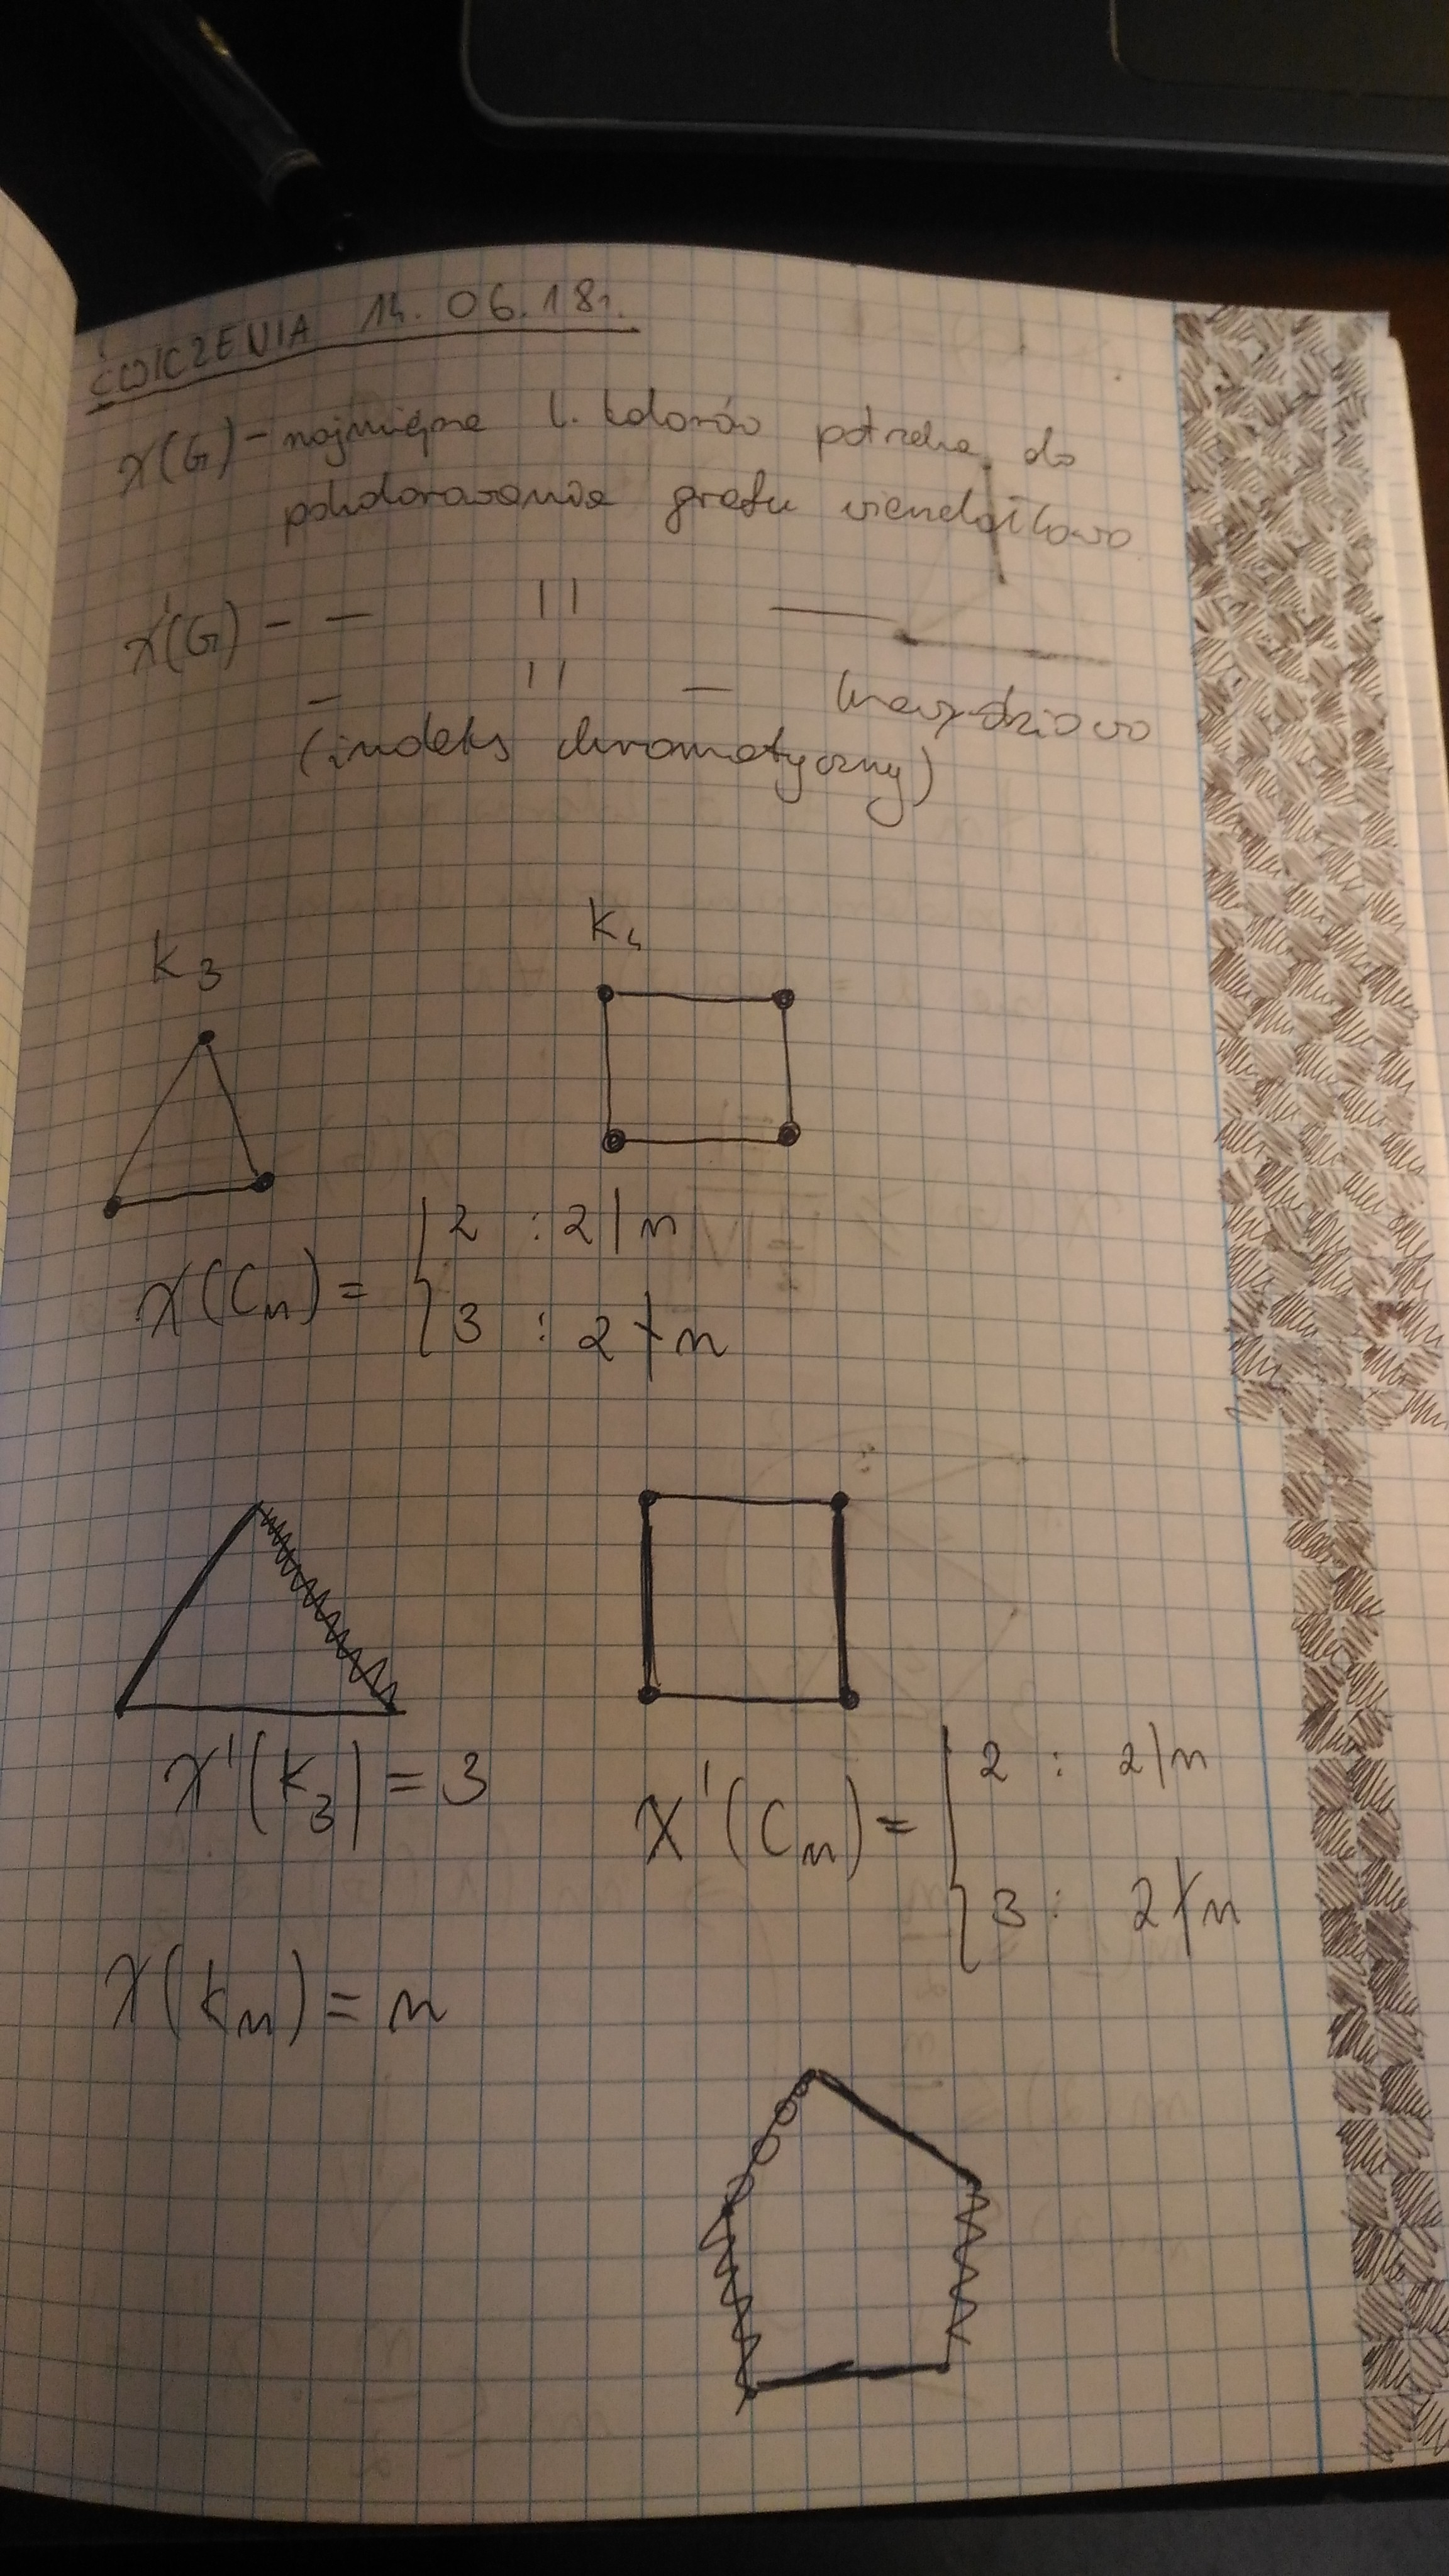 ĆWICZENIA 14.06.18r.
χ(G) - najmniejsza l. kolorów potrzebna do
pokolorowania grafu wierzchołkowo
χ'(G) - — " —
— " — krawędziowo
(indeks chromatyczny)
K₃ K₄
χ(Cₙ) = { 2 : 2|n
3 : 2∤n
χ'(K₃) = 3
χ'(Cₙ) = { 2 : 2|n
3 : 2∤n
χ(Kₙ) = n